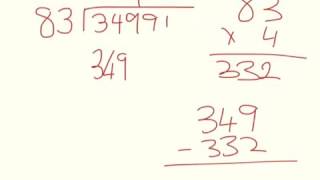 83 34991
349
83
x 4
332
349
- 332